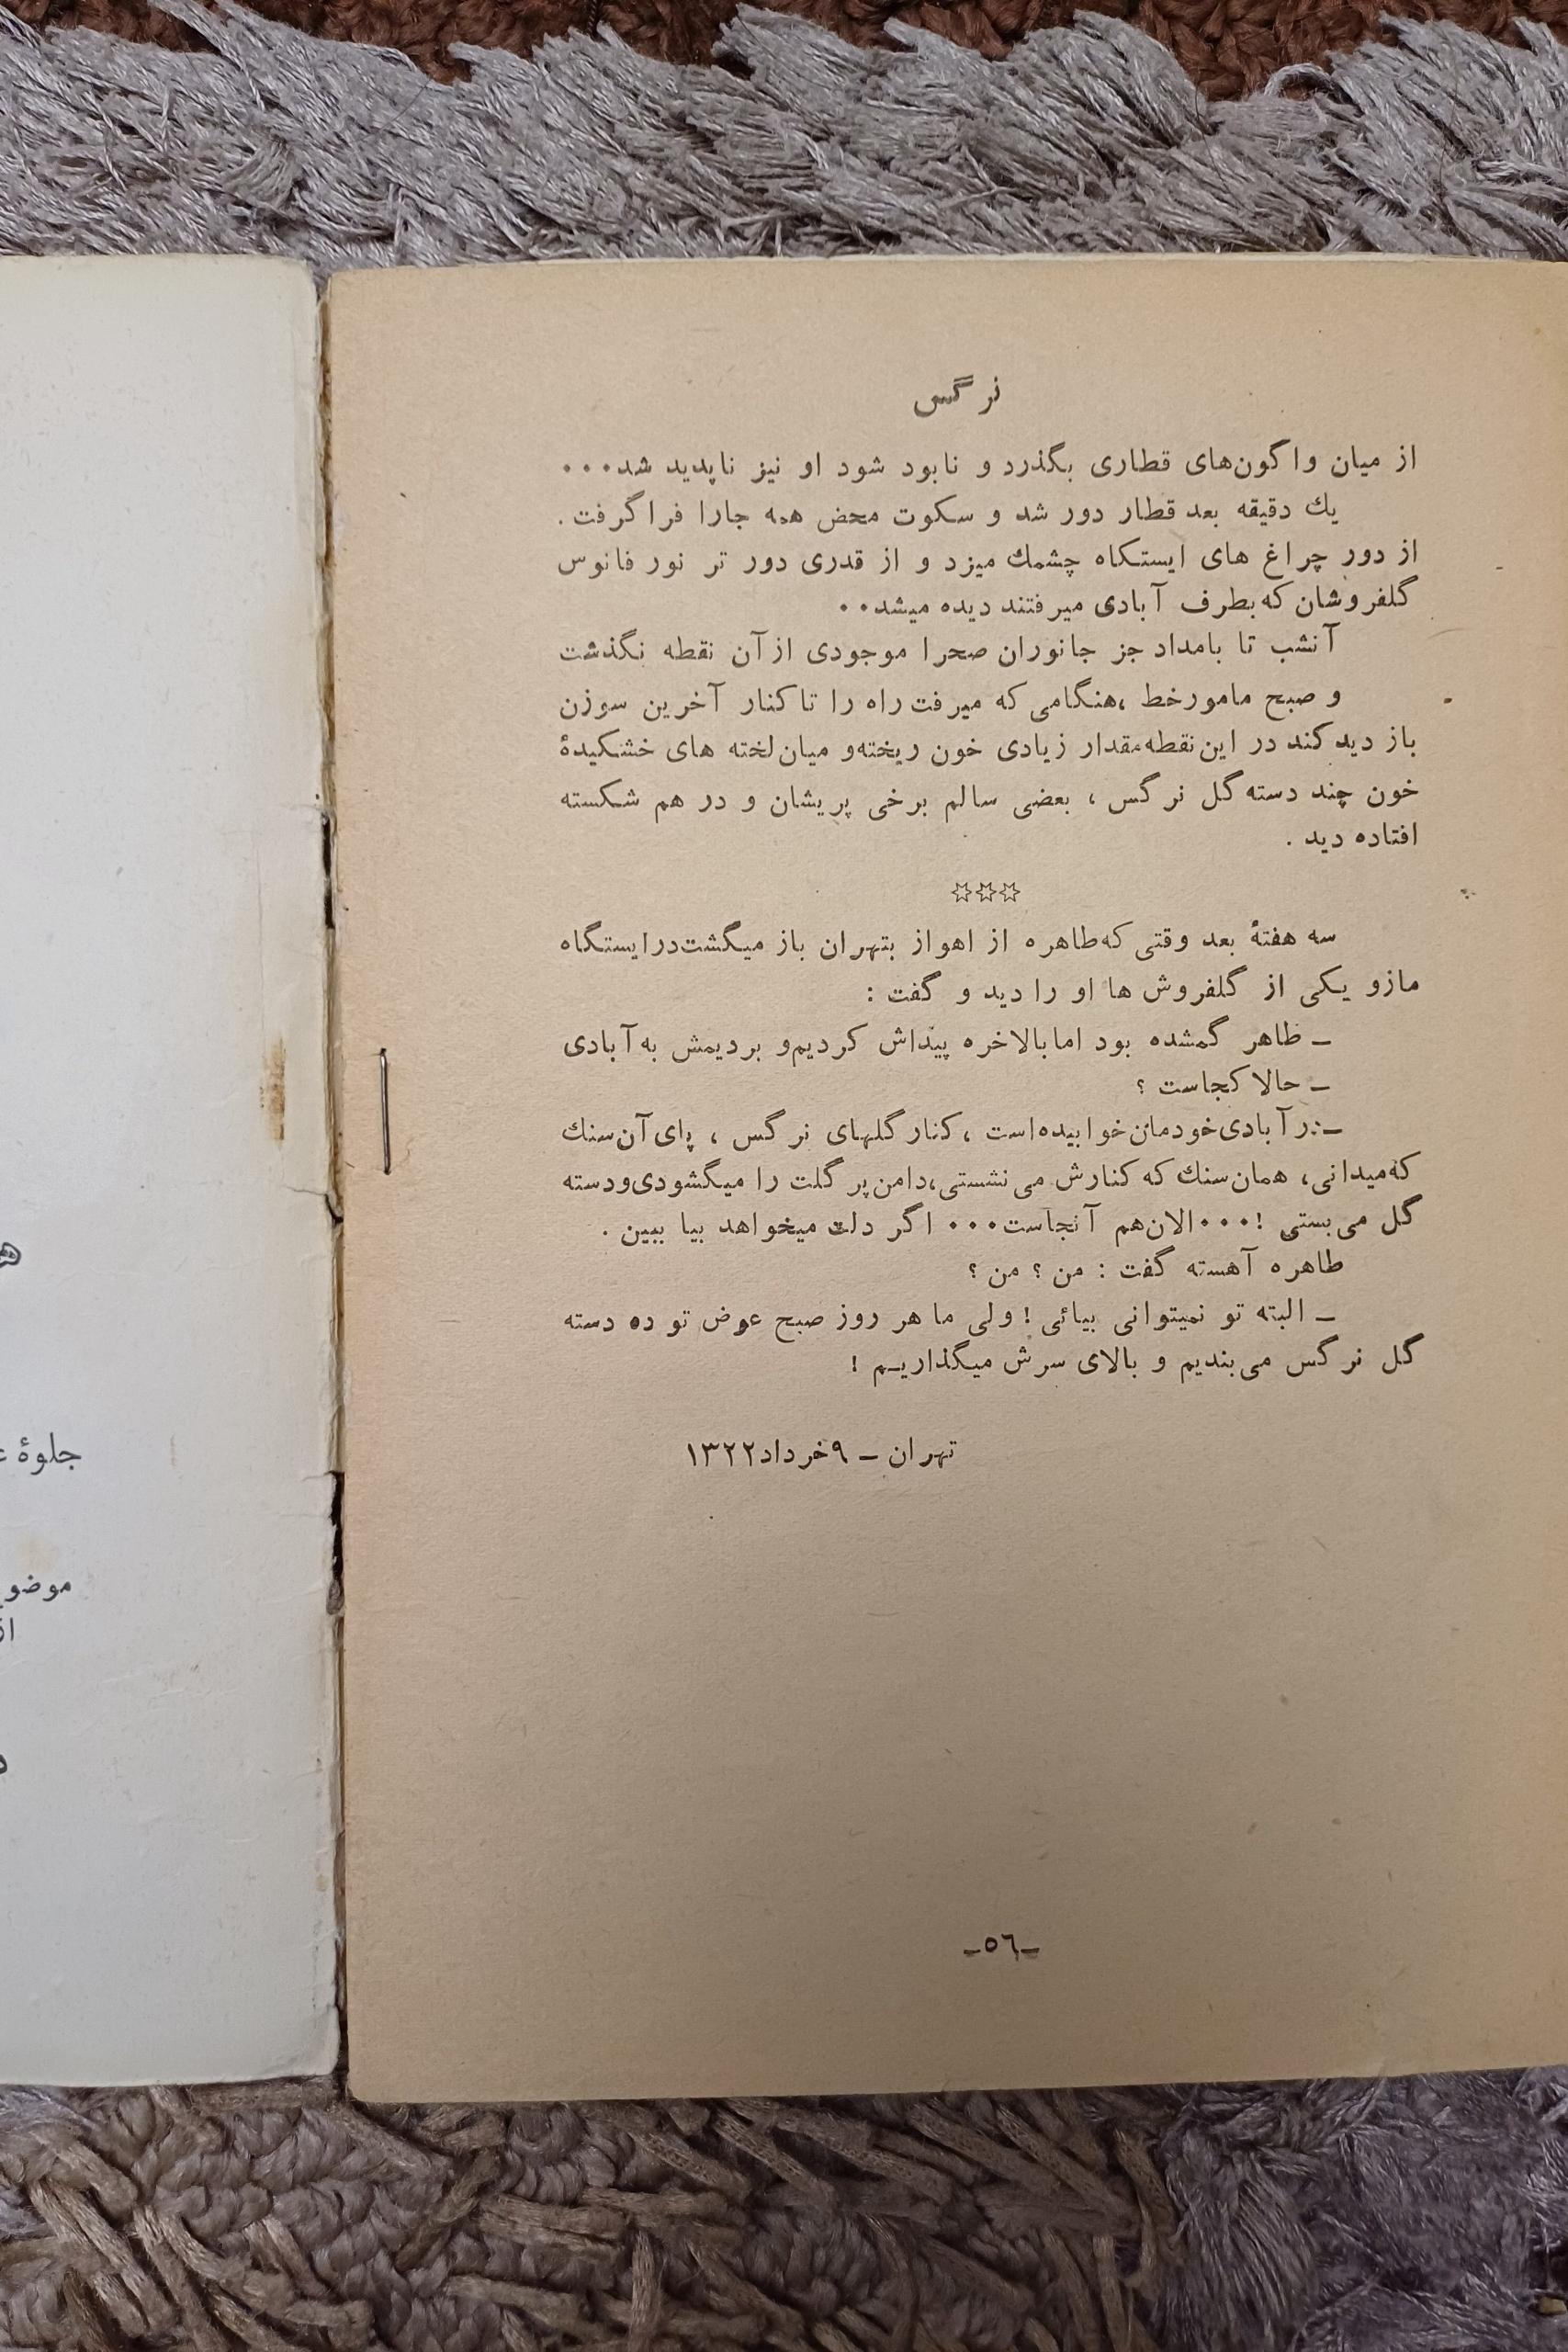 نرگس
از میان واگون‌های قطاری بگذرد و نابود شود او نیز ناپدید شد...
یك دقیقه بعد قطار دور شد و سکوت محض همه جارا فراگرفت .
از دور چراغ های ایستگاه چشمك میزد و از قدری دور تر نور فانوس
گلفروشان که بطرف آبادی میرفتند دیده میشد..
آنشب تا بامداد جز جانوران صحرا موجودی از آن نقطه نگذشت
و صبح مامورخط ،هنگامی که میرفت راه را تا کنار آخرین سوزن
باز دید کند در این نقطه مقدار زیادی خون ریخته و میان لخته های خشکیدهٔ
خون چند دسته گل نرگس ، بعضی سالم برخی پریشان و در هم شکسته
افتاده دید .
☆☆☆
سه هفتهٔ بعد وقتی که طاهره از اهواز بتهران باز میگشت در ایستگاه
مازو یکی از گلفروش ها او را دید و گفت :
ـ طاهر گمشده بود اما بالاخره پیداش کردیم و بردیمش به آبادی
ـ حالا کجاست ؟
ـ در آبادی خودمان خوابیده است ، کنار گلهای نرگس ، پای آن سنك
که میدانی، همان سنك که کنارش می نشستی، دامن پر گلت را میگشودی و دسته
گل می بستی !... الان هم آنجاست... اگر دلت میخواهد بیا ببین .
طاهره آهسته گفت : من ؟ من ؟
ـ البته تو نمیتوانی بیائی ! ولی ما هر روز صبح عوض تو ده دسته
گل نرگس می بندیم و بالای سرش میگذاریم !
تهران ـ ۹ خرداد ۱۳۲۲
ـ٥٦ـ
جلوهٔ